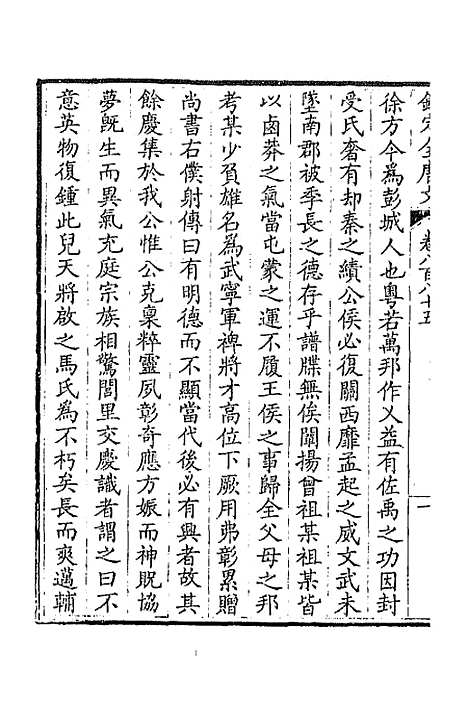 欽定全唐文　卷八百八十五　一
徐方今為彭城人也粵若萬邦作乂益有佐禹之功因封
受氏奢有却秦之績公侯必復關西靡孟起之威文武未
墜南郡被季長之德存乎譜牒無俟闡揚曾祖某祖某皆
以鹵莽之氣當屯蒙之運不履王侯之事歸全父母之邦
考某少負雄名為武寧軍裨將才高位下厥用弗彰累贈
尚書右僕射傳曰有明德而不顯當代後必有興者故其
餘慶集於我公惟公克稟粹靈夙彰奇應方娠而神貺協
夢既生而異氣充庭宗族相驚閭里交慶識者謂之曰不
意英物復鍾此兒天將啟之馬氏為不朽矣長而爽邁輔